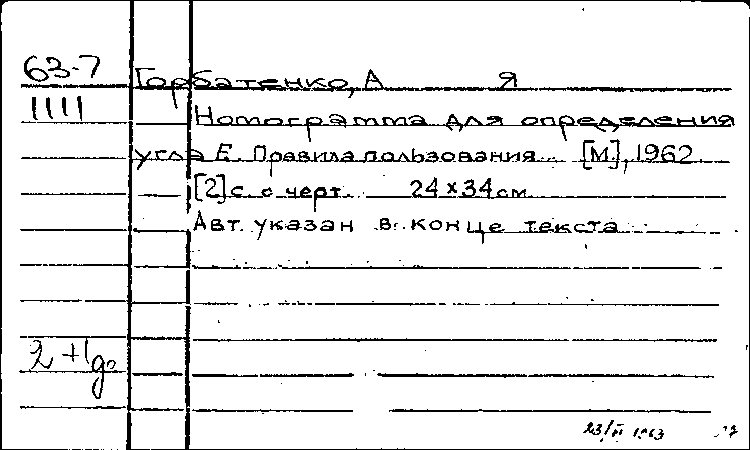 63-7
Горбатенко, А Я
1111
Номограмма для определения
угла Е. Правила пользования. [М.], 1962
[2] с. с черт. 24×34 см
Авт. указан в конце текста
2 +1
23/II 1963